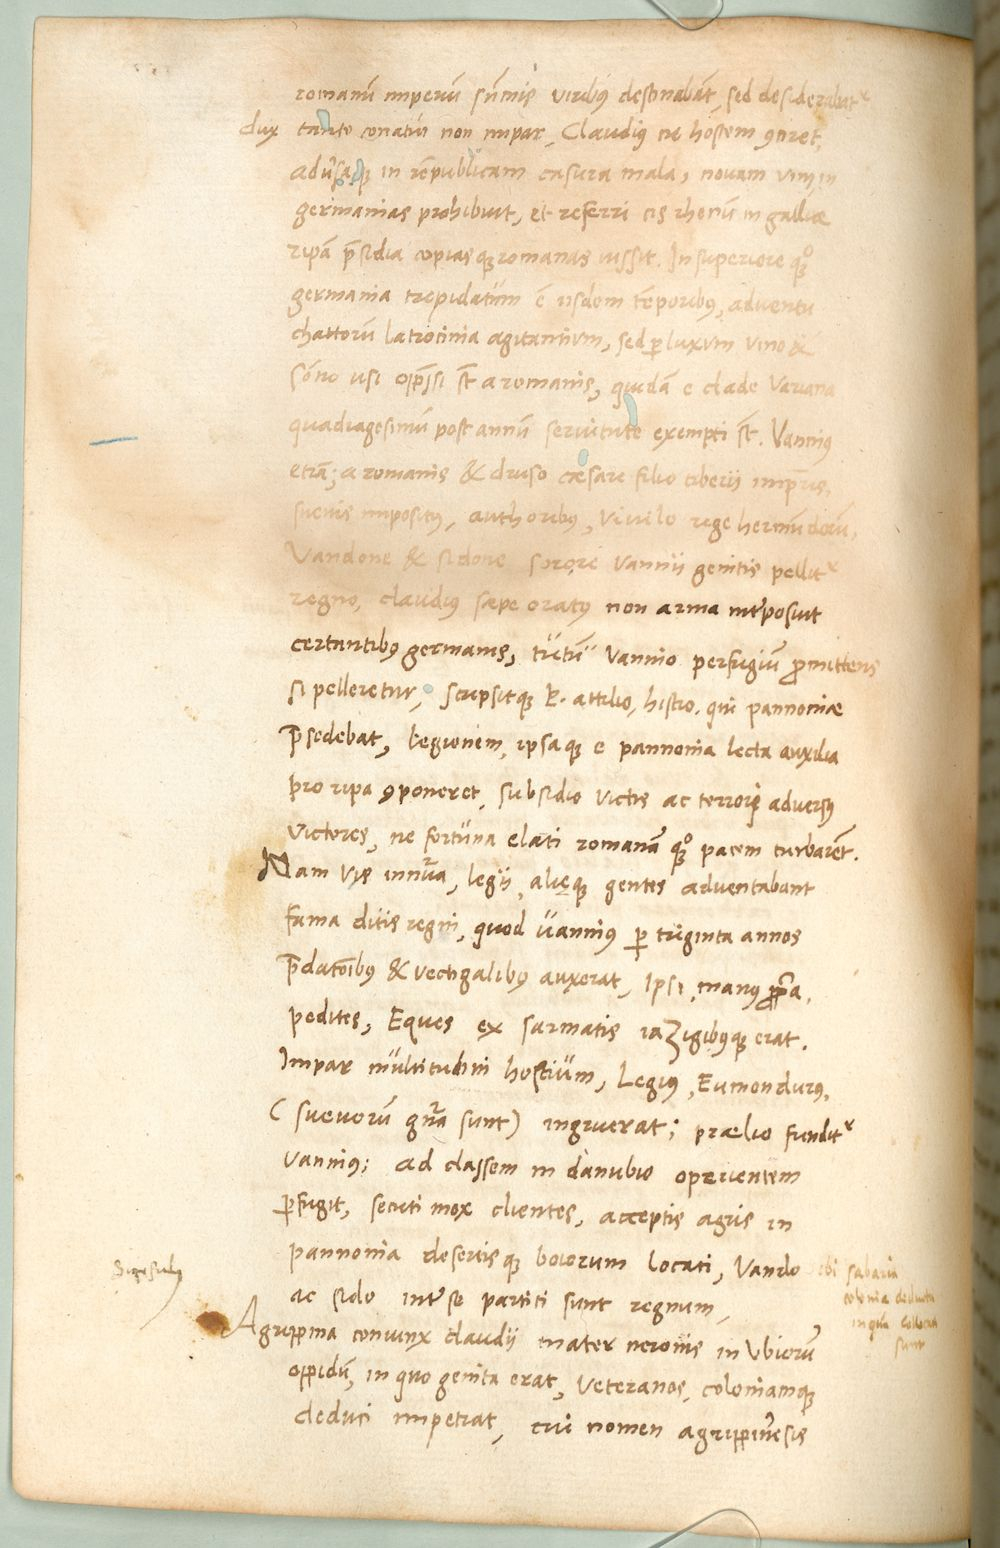 romanū imperiū sūmis viribꝰ destinabāt, sed desiderabatʳ
dux tanto conatui non impar, Claudiꝰ ne hostem ꝯciret,
adūsaqꝫ in rēpublicam casura mala, novam vim in
germanias prohibuit, et referri cis rhenū in galliæ
ripā p̄sidia copiasqꝫ romanas iussit. In superiore qꝫᵒ
germania trepidatum ē iisdem tēporibꝰ, adventu
chattorū latrocinia agitantium, sed ꝑ luxum vino &
sōno usi opp̄ssi sт̄ a romanis, quidā e clade Variana
quadragesimū post annū servitute exempti sт̄. Vannius
etiā; a romanis & druso cæsare filio tiberii imp̄ris,
suevis impositꝰ, authoribꝰ, Vivilo rege hermūdorū,
Vandone & sidone sorore Vannii genitis pellitʳ
regno, claudius sæpe oratꝰ non arma int̓posuit
certantibꝰ germanis, tūtū Vannio perfugiū ꝓmittens
si pelleretur, scripsitqꝫ P. attilio, histro. qui pannoniæ
p̄sedebat, legionem, ipsaqꝫ e pannonia lecta auxilia
pro ripa ꝯponeret, subsidio victis ac terrori adversꝰ
victores, ne fortuna elati romanā qꝫᵒ pacem turbarēt.
Nam vis innūa, legii, alięqꝫ gentes adventabant
fama ditis regni, quod Vanniꝰ ꝑ triginta annos
p̄datōibꝰ & vectigalibꝰ auxerat, Ipsi manꝰ ꝓp̄a,
pedites, Eques ex sarmatis iazigibꝰqꝫ erat.
Impar multitudini hostium, Legiꝰ, Eumondurꝰ,
( suevorū gn̄a sunt) ingruerat; prælio funditʳ
Vanniꝰ; ad classem in danubio operientem
ꝑfugit, secuti mox clientes, acceptis agris in
pannonia desertisqꝫ boiorum locati, Vando ubi sabaria
colonia deducta
in qua collocati
sunt
ac sido int̓ se partiti sunt regnum,
Agrippina coniunx claudii mater neronis in Vbiorū
oppidū, in quo genita erat, Veteranos, coloniamqꝫ
deduci impetrat, cui nomen agrippinēsis